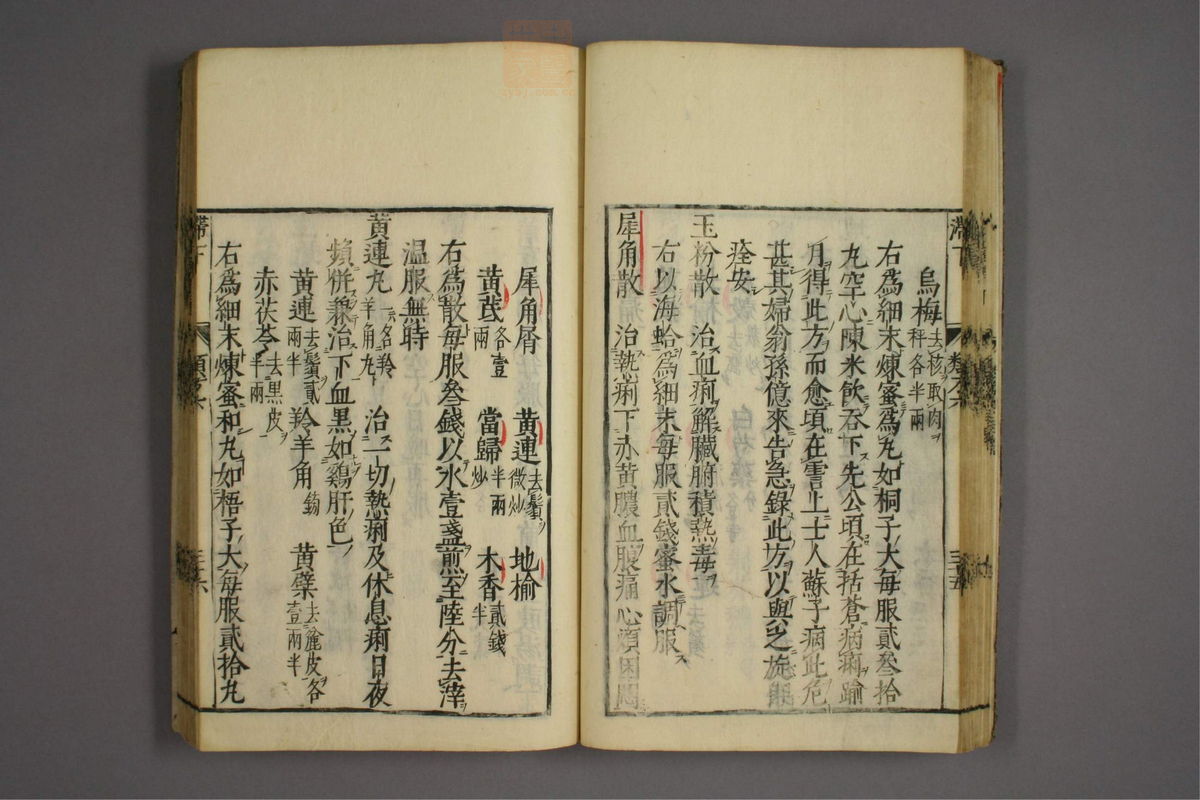 烏梅去核取肉秤各半兩
右爲細末煉蜜爲丸如桐子大每服貳叁拾
丸空心陳米飲吞下先公頃在括蒼病痢踰
月得此方而愈頃在霅上士人蘇子病此危
甚其婦翁孫億來告急錄此方以與之旋
痊安
玉粉散　治血痢解臟腑積熱毒
右以海蛤爲細末每服貳錢蜜水調服
犀角散　治熱痢下赤黃膿血腹痛心煩困悶
犀角屑　黃連去鬚微炒半兩　地榆
黃芪各壹兩　當歸半兩炒　木香貳錢半
右爲散每服叁錢以水壹盞煎至陸分去滓
温服無時
黃連丸一名羚羊角丸　治一切熱痢及休息痢日夜
頻併兼治下血黑如鷄肝色
黃連去鬚貳兩半　羚羊角鎊　黃蘗去麄皮各壹兩半
赤茯苓去黑皮半兩
右爲細末煉蜜和丸如梧子大每服貳拾丸
滯下